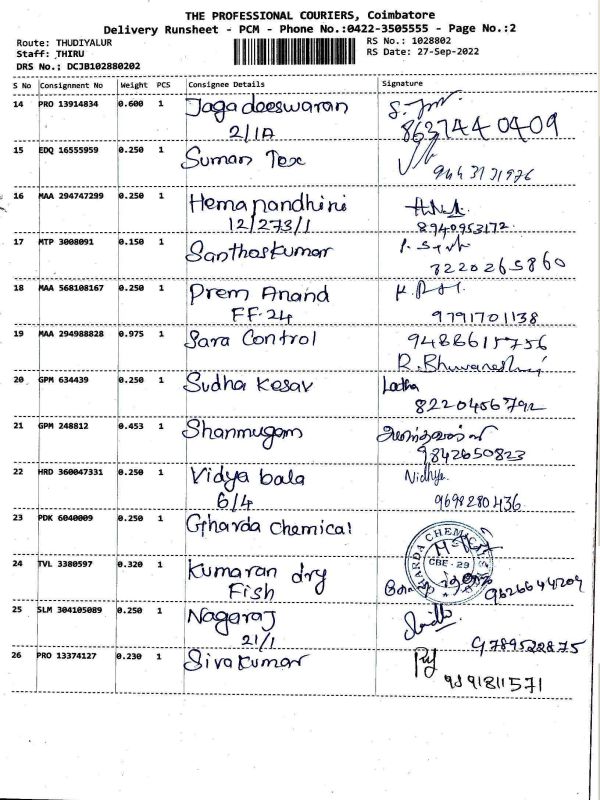 THE PROFESSIONAL COURIERS, Coimbatore
Delivery Runsheet - PCM - Phone No.:0422-3505555 - Page No.:2
Route: THUDIYALUR RS No.: 1028802
Staff: THIRU RS Date: 27-Sep-2022
DRS No.: DCJB102880202
S No Consignment No Weight PCS Consignee Details Signature
14 PRO 13914834 0.600 1 Jagadeeswaran
2/1A 8637440409
15 EDQ 16555959 0.250 1 Suman Tex
9443131976
16 MAA 294747299 0.250 1 Hemanandhini
12/273/1 8940953172
17 MTP 3008091 0.150 1 Santhoskumar
8220265860
18 MAA 568108167 0.250 1 Prem Anand
FF-24 9791701138
19 MAA 294988828 0.975 1 Sara Control 9488615756
R. Bhuvaneshwari
20 GPM 634439 0.250 1 Sudha Kesav Latha
8220456792
21 GPM 248812 0.453 1 Shanmugam
9842650823
22 HRD 360047331 0.250 1 Vidya bala Nidhya
6/4 9698280436
23 PDK 6040009 0.250 1 Gharda Chemical
GHARDA CHEMICALS
CBE - 29
24 TVL 3380597 0.320 1 Kumaran dry
Fish 9626644204
25 SLM 304105089 0.250 1 Nagaraj
21/1 9789522875
26 PRO 13374127 0.230 1 Sivakumar
9891811571